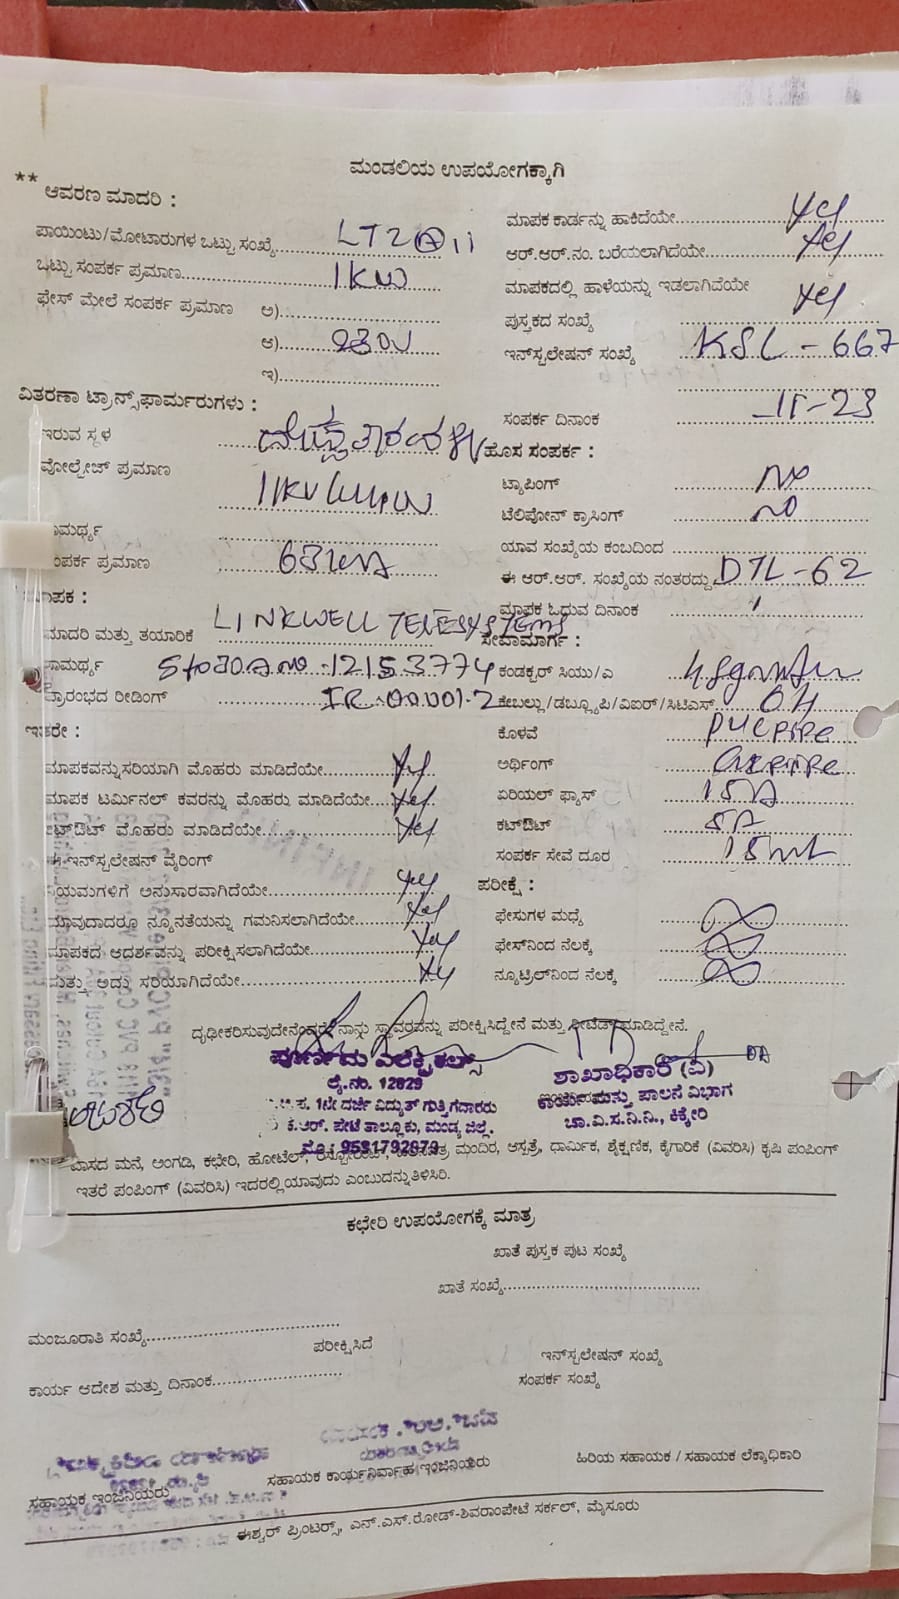 ಮಂಡಲಿಯ ಉಪಯೋಗಕ್ಕಾಗಿ
** ಆವರಣ ಮಾದರಿ :
ಪಾಯಿಂಟು/ಮೋಟಾರುಗಳ ಒಟ್ಟು ಸಂಖ್ಯೆ LT2 A ii
ಒಟ್ಟು ಸಂಪರ್ಕ ಪ್ರಮಾಣ 1KW
ಫೇಸ್ ಮೇಲೆ ಸಂಪರ್ಕ ಪ್ರಮಾಣ ಅ)
ಆ) 230V
ಇ)
ವಿತರಣಾ ಟ್ರಾನ್ಸ್‌ಫಾರ್ಮರುಗಳು :
ಇರುವ ಸ್ಥಳ
ವೋಲ್ಟೇಜ್ ಪ್ರಮಾಣ 11KV
ಸಾಮರ್ಥ್ಯ
ಸಂಪರ್ಕ ಪ್ರಮಾಣ 63
ಮಾಪಕ :
ಮಾದರಿ ಮತ್ತು ತಯಾರಿಕೆ LINKWELL TELESYSTEMS
ಸಾಮರ್ಥ್ಯ 12153774
ಪ್ರಾರಂಭದ ರೀಡಿಂಗ್ IR 00001.2
ಇತರೇ :
ಮಾಪಕವನ್ನು ಸರಿಯಾಗಿ ಮೊಹರು ಮಾಡಿದೆಯೇ yes
ಮಾಪಕ ಟರ್ಮಿನಲ್ ಕವರನ್ನು ಮೊಹರು ಮಾಡಿದೆಯೇ yes
ಕಟ್‌ಔಟ್ ಮೊಹರು ಮಾಡಿದೆಯೇ yes
ಈ ಇನ್‌ಸ್ಟಲೇಷನ್ ವೈರಿಂಗ್
ನಿಯಮಗಳಿಗೆ ಅನುಸಾರವಾಗಿದೆಯೇ yes
ಯಾವುದಾದರೂ ನ್ಯೂನತೆಯನ್ನು ಗಮನಿಸಲಾಗಿದೆಯೇ yes
ಮಾಪಕದ ಆದರ್ಶವನ್ನು ಪರೀಕ್ಷಿಸಲಾಗಿದೆಯೇ yes
ಮತ್ತು ಅದು ಸರಿಯಾಗಿದೆಯೇ yes
ಮಾಪಕ ಕಾರ್ಡನ್ನು ಹಾಕಿದೆಯೇ yes
ಆರ್.ಆರ್.ನಂ. ಬರೆಯಲಾಗಿದೆಯೇ yes
ಮಾಪಕದಲ್ಲಿ ಹಾಳೆಯನ್ನು ಇಡಲಾಗಿವೆಯೇ yes
ಪುಸ್ತಕದ ಸಂಖ್ಯೆ
ಇನ್‌ಸ್ಟಲೇಷನ್ ಸಂಖ್ಯೆ KSL - 667
ಸಂಪರ್ಕ ದಿನಾಂಕ -11-23
ಹೊಸ ಸಂಪರ್ಕ :
ಟ್ಯಾಪಿಂಗ್ NO
ಟೆಲಿಪೋನ್ ಕ್ರಾಸಿಂಗ್ NO
ಯಾವ ಸಂಖ್ಯೆಯ ಕಂಬದಿಂದ
ಈ ಆರ್.ಆರ್. ಸಂಖ್ಯೆಯ ನಂತರದ್ದು DTL-62
ಮಾಪಕ ಓದುವ ದಿನಾಂಕ
ಸೇವಾಮಾರ್ಗ :
ಕಂಡಕ್ಟರ್ ಸಿಯು/ಎ
ಕೇಬಲ್ಲು/ಡಬ್ಲ್ಯೂಪಿ/ವಿಐಆರ್/ಸಿಟಿಎಸ್ OH
ಕೊಳವೆ PVC PIPE
ಅರ್ಥಿಂಗ್ PIPE
ಏರಿಯಲ್ ಫ್ಯಾಸ್ 15A
ಕಟ್‌ಔಟ್ 5A
ಸಂಪರ್ಕ ಸೇವೆ ದೂರ
ಪರೀಕ್ಷೆ :
ಫೇಸುಗಳ ಮಧ್ಯೆ
ಫೇಸ್‌ನಿಂದ ನೆಲಕ್ಕೆ
ನ್ಯೂಟ್ರಲ್‌ನಿಂದ ನೆಲಕ್ಕೆ
ದೃಢೀಕರಿಸುವುದೇನೆಂದರೆ ನಾನು ಸ್ಥಾವರವನ್ನು ಪರೀಕ್ಷಿಸಿದ್ದೇನೆ ಮತ್ತು ಮಾಡಿದ್ದೇನೆ.
ಪೂರ್ಣಿಮ ಎಲೆಕ್ಟ್ರಿಕಲ್ಸ್
ಲೈ.ನಂ. 12829
1ನೇ ದರ್ಜೆ ವಿದ್ಯುತ್ ಗುತ್ತಿಗೆದಾರರು
ಕೆ.ಆರ್. ಪೇಟೆ ತಾಲ್ಲೂಕು, ಮಂಡ್ಯ ಜಿಲ್ಲೆ.
ಮೊ : 9591792979
ಶಾಖಾಧಿಕಾರಿ (ವಿ)
ಕಾರ್ಯ ಮತ್ತು ಪಾಲನೆ ವಿಭಾಗ
ಚಾ.ವಿ.ಸ.ನಿ.ನಿ., ಕಿಕ್ಕೇರಿ
ವಾಸದ ಮನೆ, ಅಂಗಡಿ, ಕಛೇರಿ, ಹೋಟೆಲ್, ಮಂದಿರ, ಆಸ್ಪತ್ರೆ, ಧಾರ್ಮಿಕ, ಶೈಕ್ಷಣಿಕ, ಕೈಗಾರಿಕೆ (ವಿವರಿಸಿ) ಕೃಷಿ ಪಂಪಿಂಗ್
ಇತರೆ ಪಂಪಿಂಗ್ (ವಿವರಿಸಿ) ಇದರಲ್ಲಿ ಯಾವುದು ಎಂಬುದನ್ನು ತಿಳಿಸಿರಿ.
ಕಛೇರಿ ಉಪಯೋಗಕ್ಕೆ ಮಾತ್ರ
ಖಾತೆ ಪುಸ್ತಕ ಪುಟ ಸಂಖ್ಯೆ
ಖಾತೆ ಸಂಖ್ಯೆ
ಮಂಜೂರಾತಿ ಸಂಖ್ಯೆ
ಪರೀಕ್ಷಿಸಿದೆ
ಇನ್‌ಸ್ಟಲೇಷನ್ ಸಂಖ್ಯೆ
ಕಾರ್ಯ ಆದೇಶ ಮತ್ತು ದಿನಾಂಕ
ಸಂಪರ್ಕ ಸಂಖ್ಯೆ
ಸಹಾಯಕ ಇಂಜಿನಿಯರು
ಸಹಾಯಕ ಕಾರ್ಯನಿರ್ವಾಹಕ ಇಂಜಿನಿಯರು
ಹಿರಿಯ ಸಹಾಯಕ / ಸಹಾಯಕ ಲೆಕ್ಕಾಧಿಕಾರಿ
ಈಶ್ವರ್ ಪ್ರಿಂಟರ್ಸ್, ಎನ್.ಎಸ್.ರೋಡ್-ಶಿವರಾಂಪೇಟೆ ಸರ್ಕಲ್, ಮೈಸೂರು